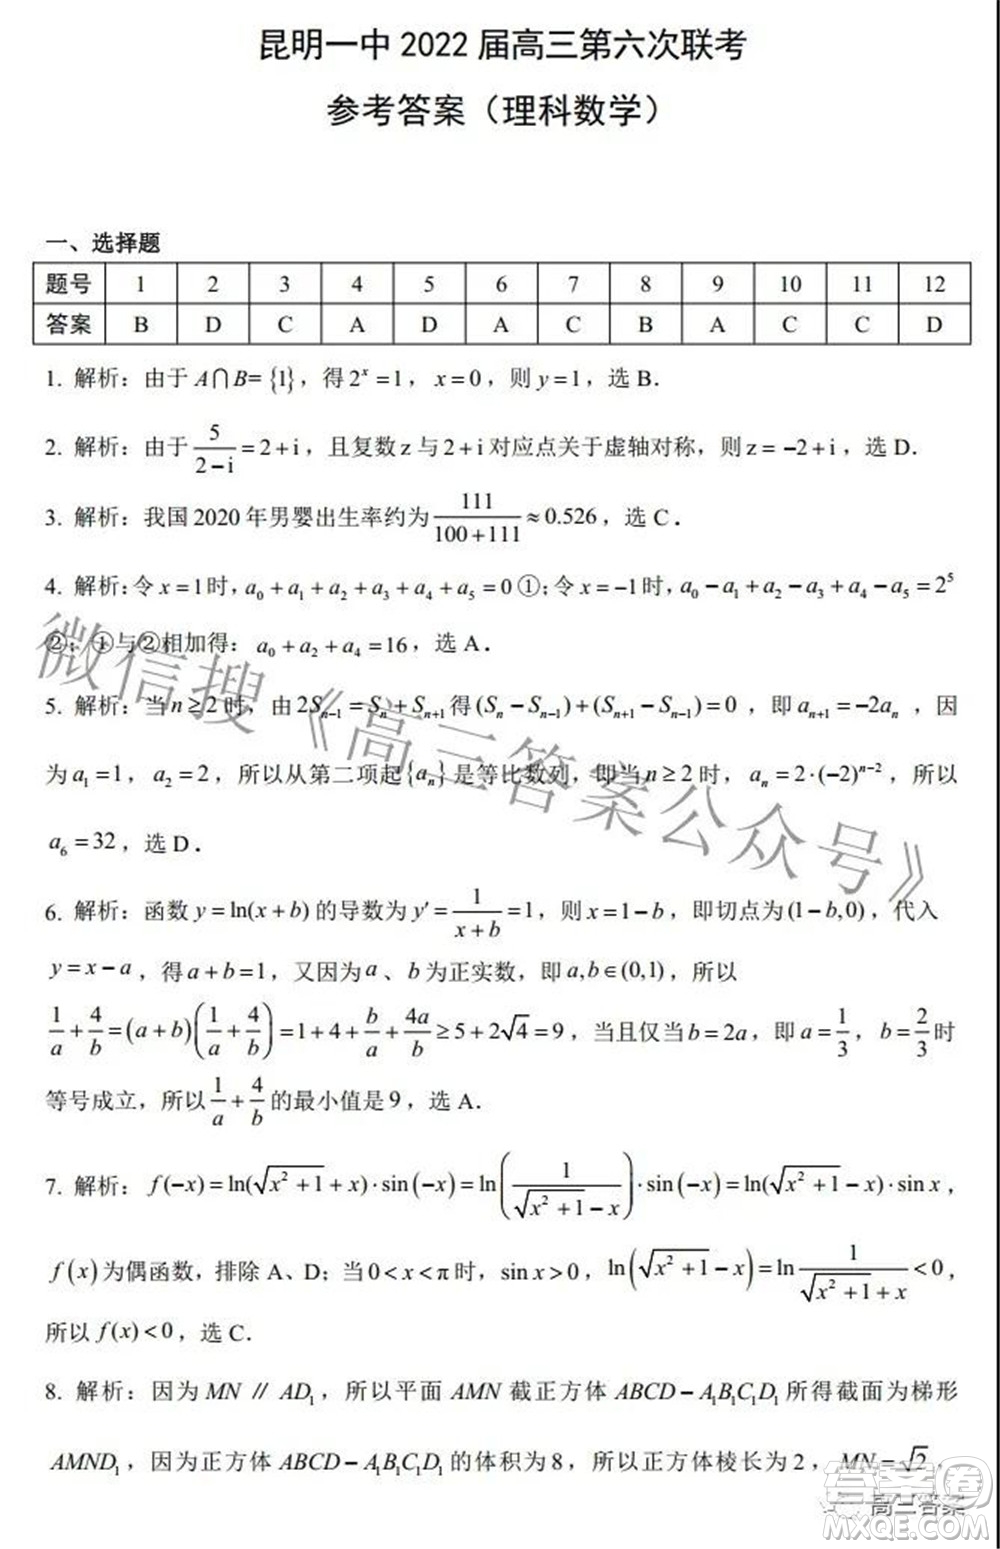 昆明一中 2022 届高三第六次联考
参考答案（理科数学）
一、选择题
题号 1 2 3 4 5 6 7 8 9 10 11 12
答案 B D C A D A C B A C C D
1. 解析：由于 A∩B={1}，得 2^x=1，x=0，则 y=1，选 B．
2. 解析：由于 5/(2-i)=2+i，且复数 z 与 2+i 对应点关于虚轴对称，则 z=-2+i，选 D．
3. 解析：我国 2020 年男婴出生率约为 111/(100+111)≈0.526，选 C．
4. 解析：令 x=1 时，a₀+a₁+a₂+a₃+a₄+a₅=0 ①；令 x=-1 时，a₀-a₁+a₂-a₃+a₄-a₅=2⁵
②；①与②相加得：a₀+a₂+a₄=16，选 A．
5. 解析：当 n≥2 时，由 2Sₙ₋₁=Sₙ+Sₙ₊₁ 得 (Sₙ-Sₙ₋₁)+(Sₙ₊₁-Sₙ₋₁)=0，即 aₙ₊₁=-2aₙ，因
为 a₁=1，a₂=2，所以从第二项起{aₙ}是等比数列，即当 n≥2 时，aₙ=2·(-2)ⁿ⁻²，所以
a₆=32，选 D．
6. 解析：函数 y=ln(x+b) 的导数为 y′=1/(x+b)=1，则 x=1-b，即切点为(1-b,0)，代入
y=x-a，得 a+b=1，又因为 a、b 为正实数，即 a,b∈(0,1)，所以
1/a+4/b=(a+b)(1/a+4/b)=1+4+b/a+4a/b≥5+2√4=9，当且仅当 b=2a，即 a=1/3，b=2/3 时
等号成立，所以 1/a+4/b 的最小值是 9，选 A．
7. 解析：f(-x)=ln(√(x²+1)+x)·sin(-x)=ln(1/(√(x²+1)-x))·sin(-x)=ln(√(x²+1)-x)·sin x，
f(x)为偶函数，排除 A、D；当 0<x<π 时，sin x>0，ln(√(x²+1)-x)=ln 1/(√(x²+1)+x)<0，
所以 f(x)<0，选 C．
8. 解析：因为 MN∥AD₁，所以平面 AMN 截正方体 ABCD-A₁B₁C₁D₁ 所得截面为梯形
AMND₁，因为正方体 ABCD-A₁B₁C₁D₁ 的体积为 8，所以正方体棱长为 2，MN=√2，
微信搜《高三答案公众号》
高三答案
答案圈
MXQE.COM